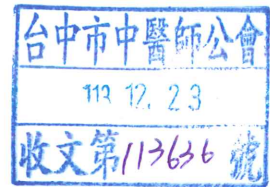 台中市中醫師公會
113. 12. 23
收文第113636號